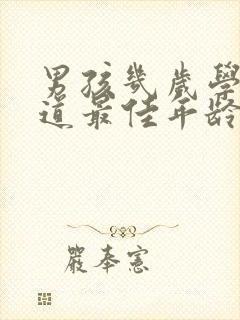 男孩幾歲學
道最佳年齡
嚴奉憲